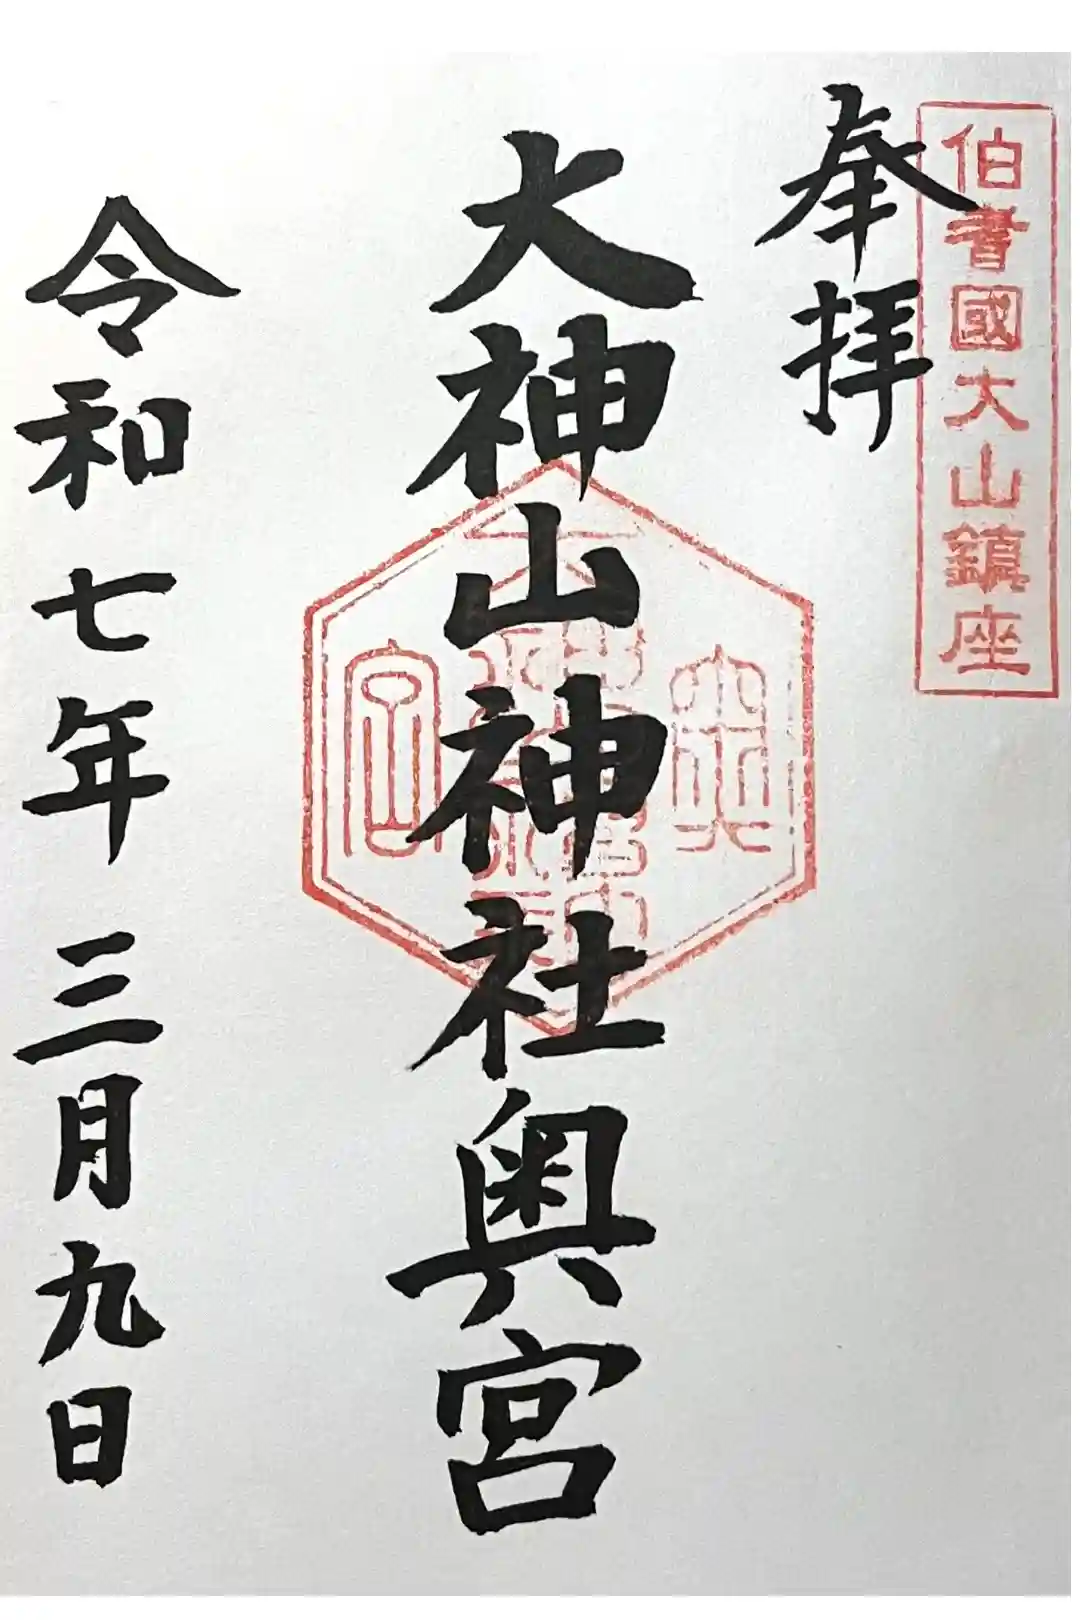 伯耆國大山鎮座
奉拝
大神山神社奥宮
奥
宮
令和七年三月九日